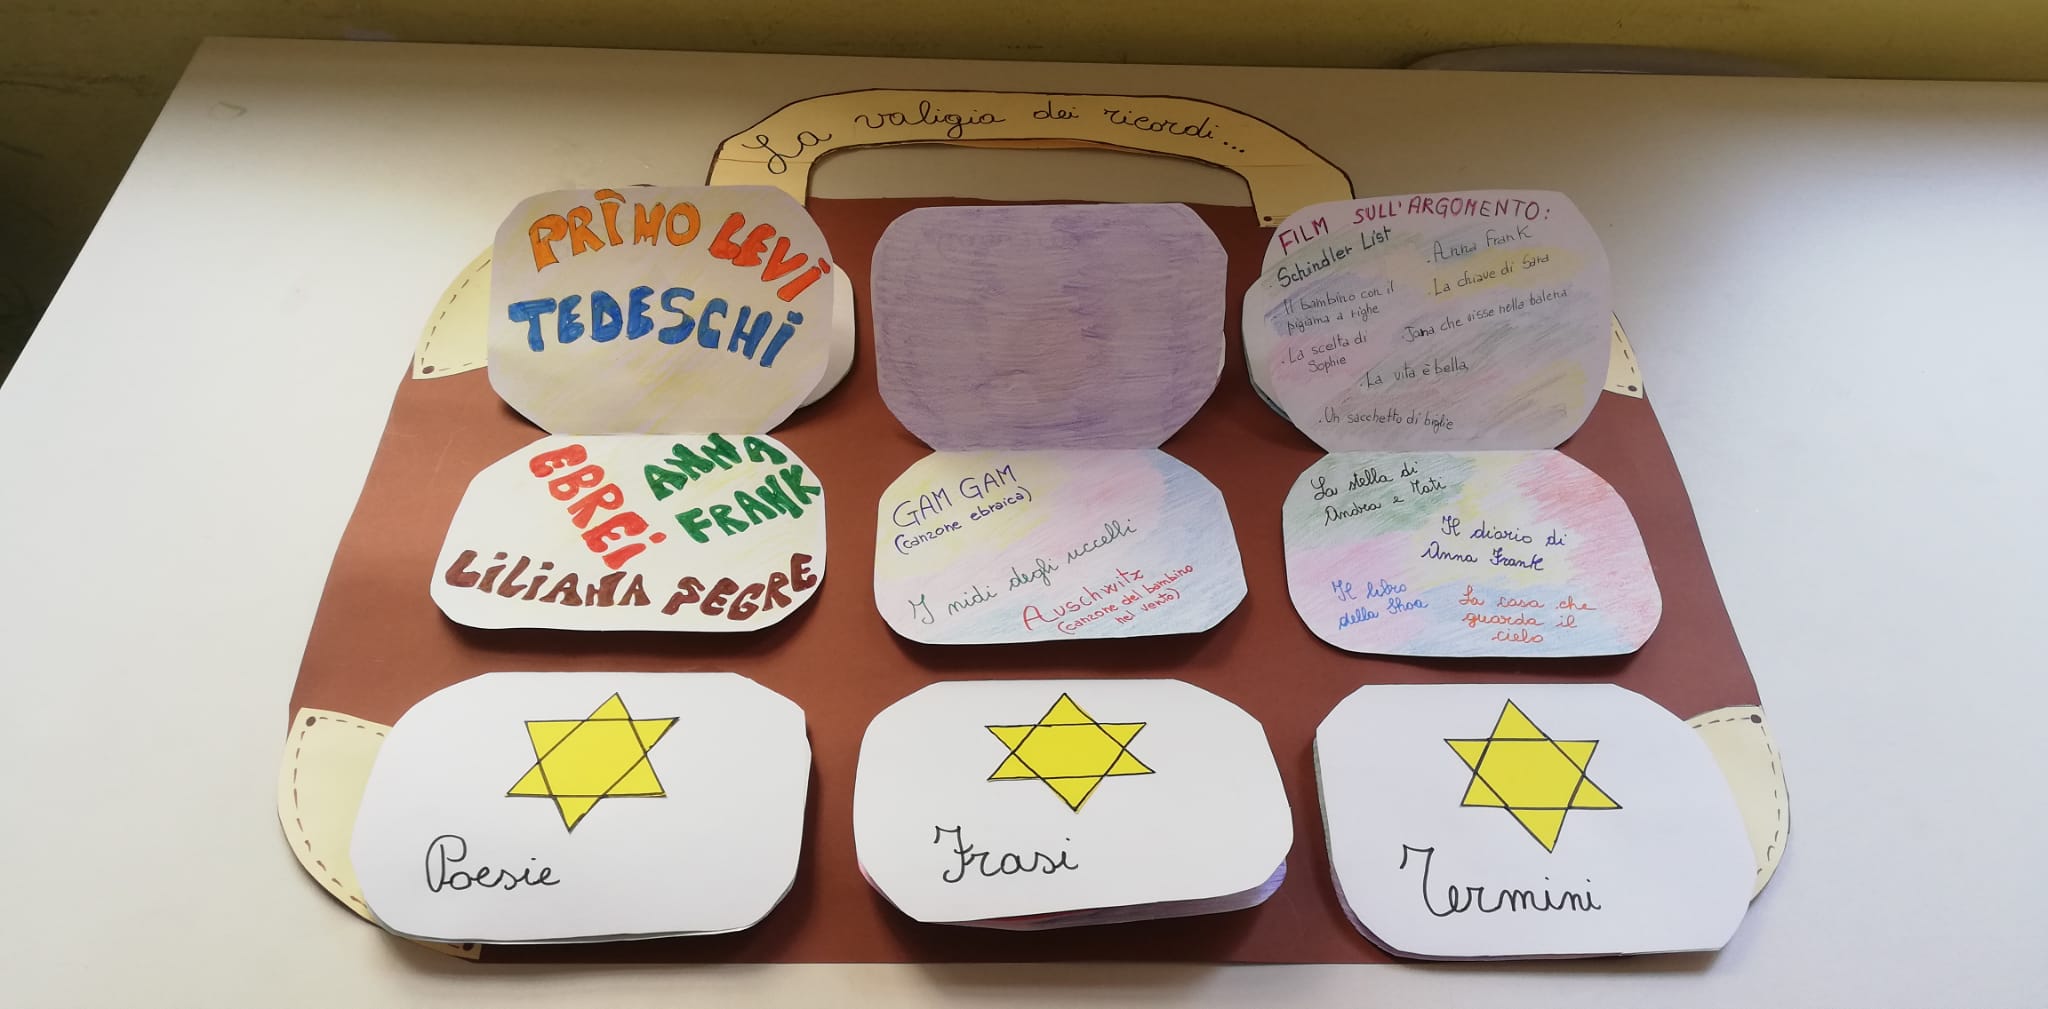 La valigia dei ricordi...
PRIMO LEVI
TEDESCHI
EBREI
ANNA
FRANK
LILIANA SEGRE
GAM GAM
(canzone ebraica)
I nidi degli uccelli
Auschwitz
(canzone del bambino
nel vento)
FILM SULL'ARGOMENTO:
. Schindler List
. Il bambino con il
pigiama a righe
. La scelta di
Sophie
. Anna Frank
. La chiave di Sara
. Jona che visse nella balena
. La vita è bella
. Un sacchetto di biglie
La stella di
Andra e Tati
Il diario di
Anna Frank
Il libro
della Shoa
La casa che
guarda il
cielo
Poesie
Frasi
Termini